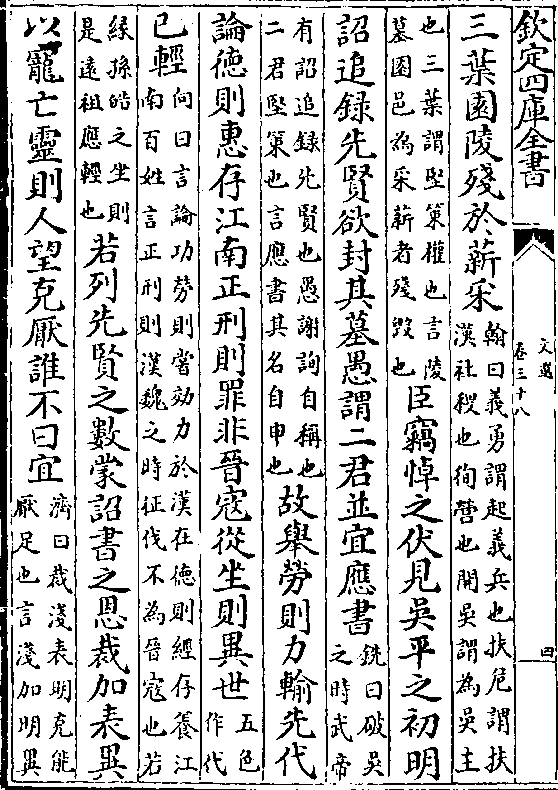 欽定四庫全書
文選
卷三十八
四
三葉園陵殘於薪采
翰曰義勇謂起義兵也扶危謂扶
漢社稷也徇營也開吳謂為吳主
也三葉謂堅策權也言陵
墓園邑為采薪者殘毀也
臣竊悼之伏見吳平之初明
詔追録先賢欲封其墓愚謂二君並宜應書
銑曰破吳
之時武帝
有詔追録先賢也愚謝詢自稱也
二君堅策也言應書其名自申也
故舉勞則力輸先代
論德則惠存江南正刑則罪非晉寇從坐則異世
五色
作代
已輕
向曰言論功勞則嘗効力於漢在德則經存養江
南百姓言正刑則漢魏之時征伐不為晉寇也若
緣孫皓之坐則
是遠祖應輕也
若列先賢之數蒙詔書之恩裁加表異
以寵亡靈則人望克厭誰不曰宜
濟曰裁淺表明克能
厭足也言淺加明異